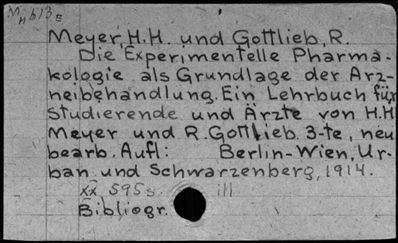 M b13
Meyer, H.H. und Gottlieb, R.
Die Experimentelle Pharma-
kologie als Grundlage der Arz-
neibehandlung. Ein Lehrbuch für
Studierende und Ärzte von H.H
Meyer und R. Gottlieb. 3-te, neu
bearb. Aufl: Berlin-Wien, Ur-
ban und Schwarzenberg, 1914.
XX 595 s. ill
Bibliogr.